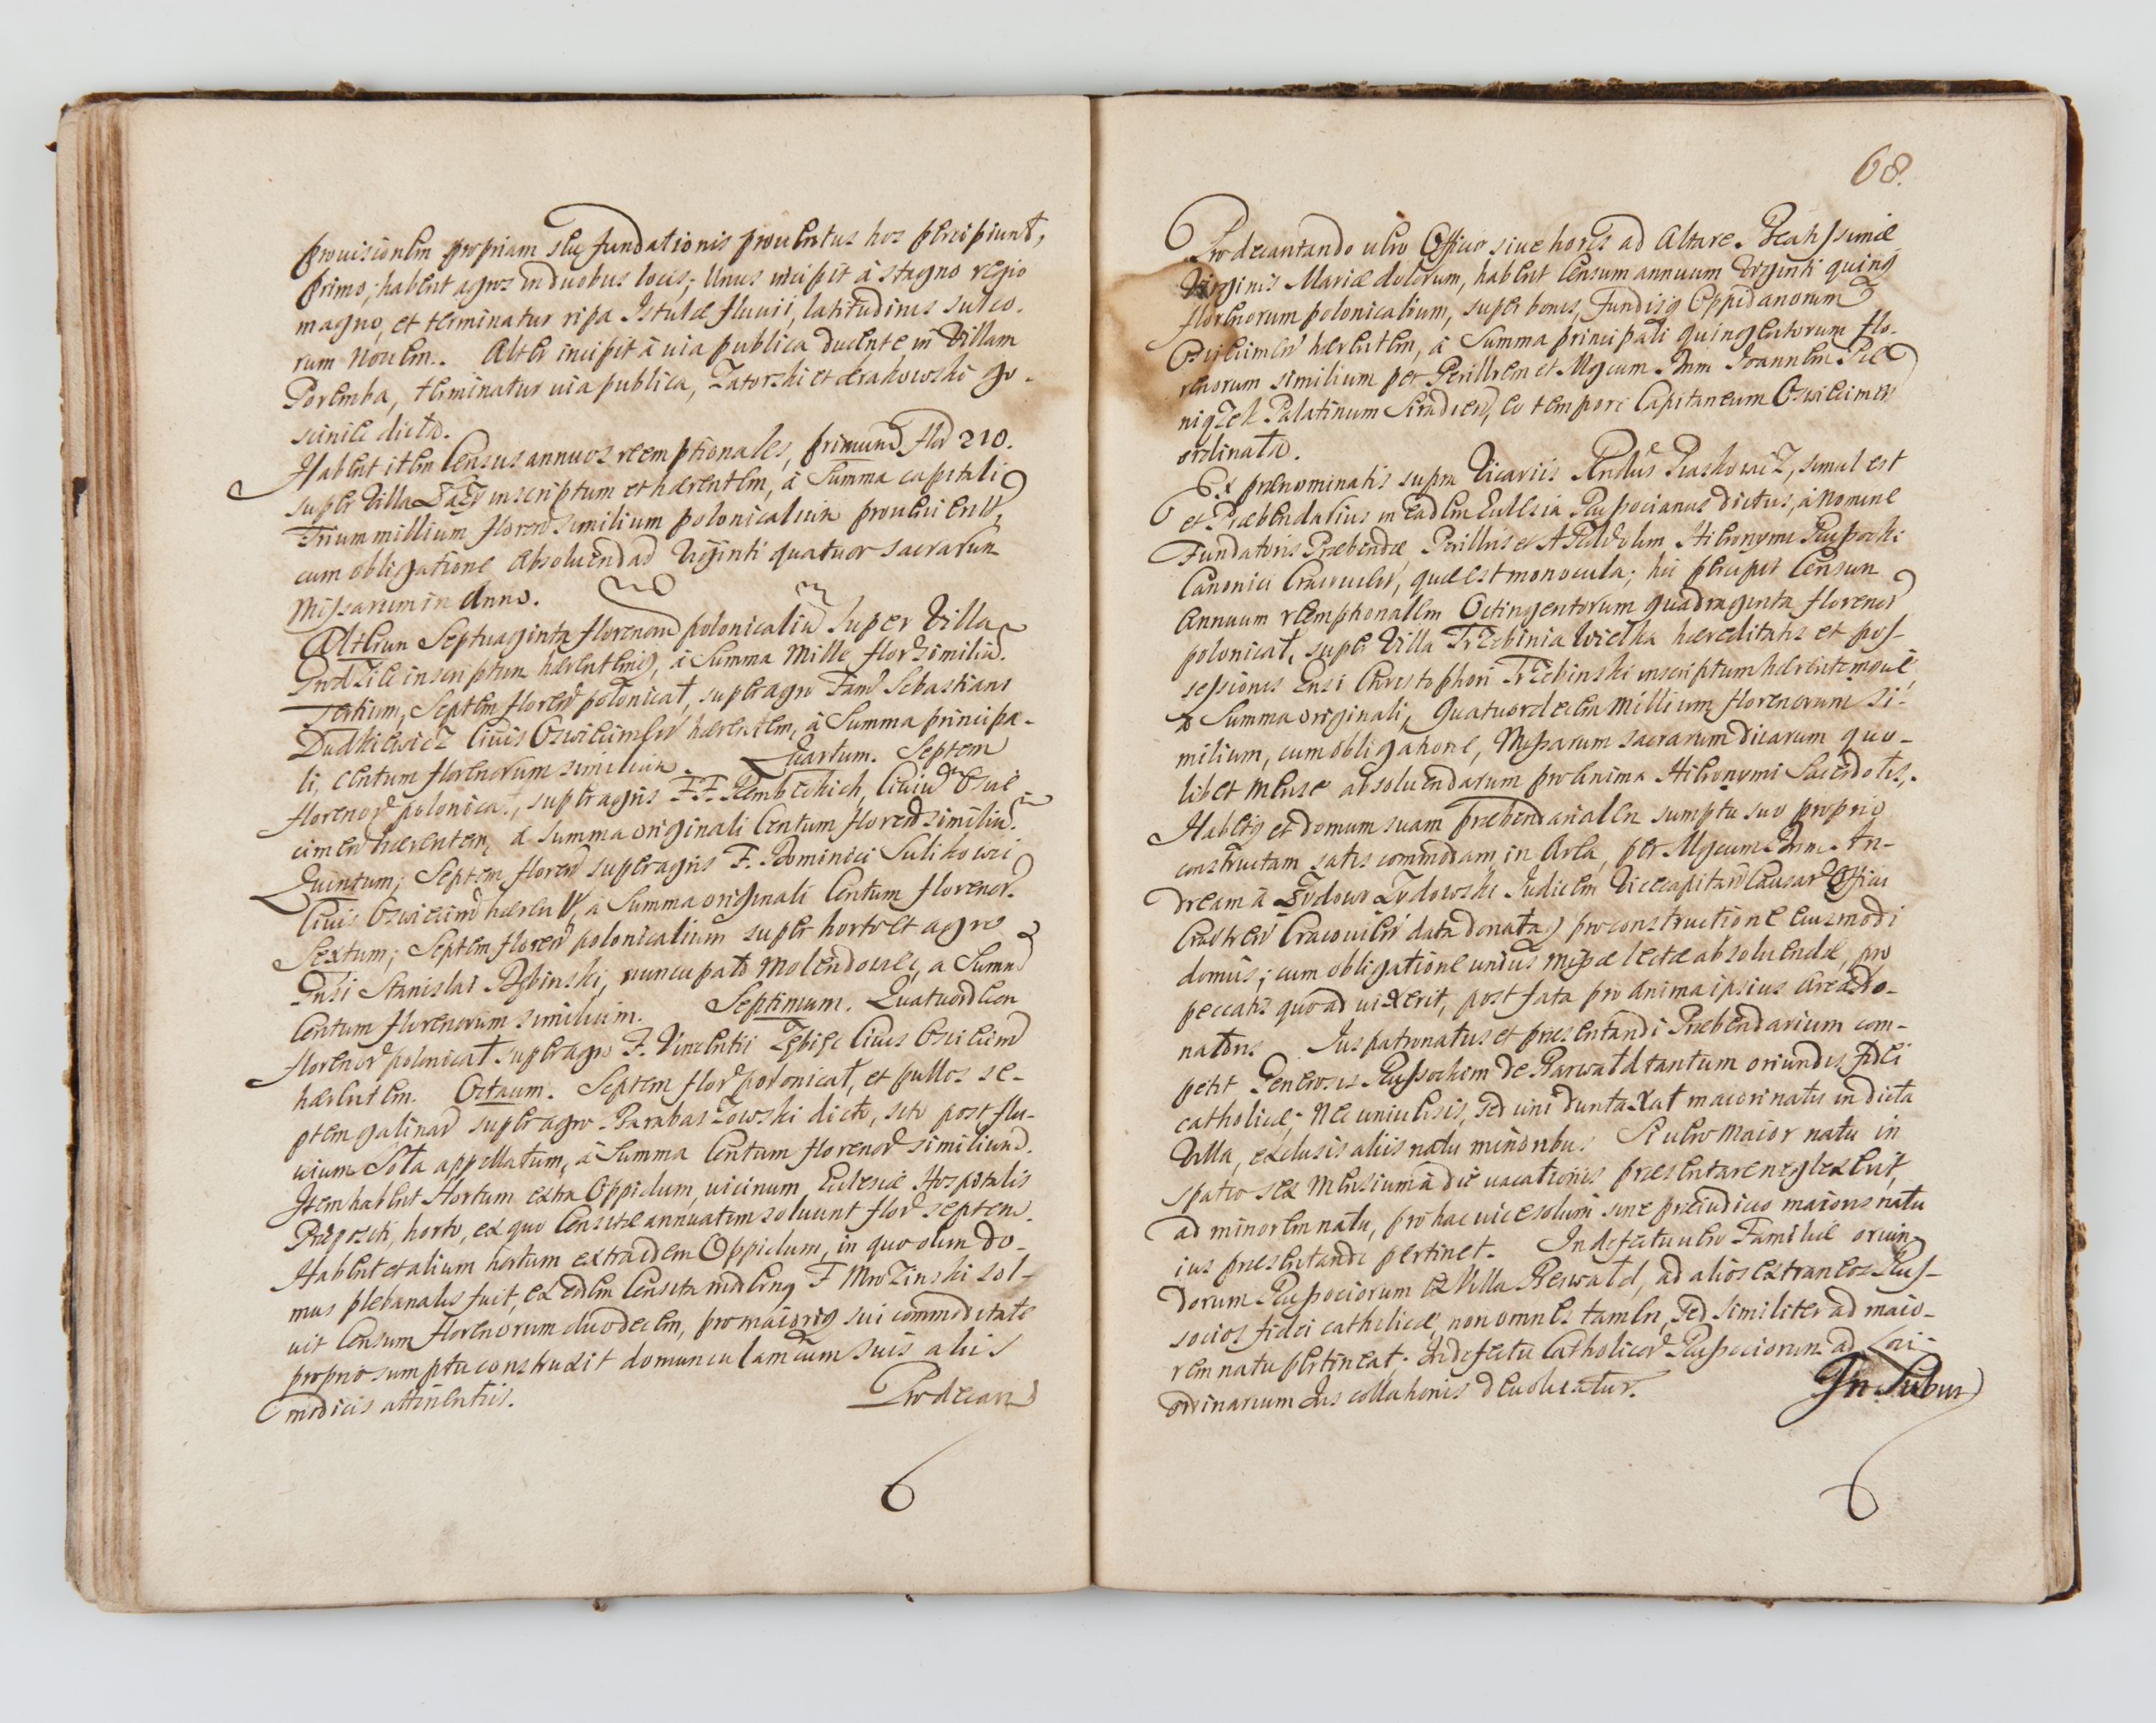 prouisionem propriam suę fundationis prouentus hos percipiunt,
primo; habent agros in duobus locis; Unus incipit à stagno regio
magno, et terminatur ripa Istulæ fluuii, latitudinis sulco-
rum nouem. Alter incipit à uia publica ducente in Villam
Poremba, terminatur uia publica, Zatorski et Krakowski go-
scinile dicta.
Habent item Census annuos reemptionales, primum flor 210.
super Villa inscriptum et hærentem, à Summa capitali
Trium millium floren similium polonicalium prouenien,
cum obligatione absoluendad Viginti quatuor sacrarum
Missarum in Anno.
Alterum Septuaginta florenoru polonicaliu super Villa
inscriptum hærentemq, à Summa Mille flor similiu.
Tertium, Septem floren polonicat, super agro Fam Sebastiani
Dudkiewicz Ciuis Oswiecimen hærentem, à Summa principa-
li, Centum florenorum similium. Quartum. Septem
florenor polonicat, super agris F.F. Ciuiu Oswie-
cimen hærentem, à Summa originali Centum floren similiu.
Quintum; Septem floren super agris F. Dominici Sulikowic
Ciuis Oswiecim hæren, à Summa originali Centum florenor.
Sextum; Septem floren polonicalium super horto et agro
Stanislai nuncupato Molendowec, a Summ
Centum florenorum similium. Septimum. Quatuordecem
florenor polonicat super agro F. Vincentii Ciuis Oswiecim
hærentem. Octauum. Septem flor polonicat, et pullos se-
ptem galinar super agro Barabaszowski dicto, sito post flu-
uium Sola appellatum, à Summa Centum florenor similium.
Item habent Hortum extra Oppidum, uicinum Eclesiæ Hospitalis
Præpositi, horto, ex quo Censitæ annuatim soluunt flor septem.
Habent et alium hortum extra idem Oppidum, in quo olim do-
mus plebanalis fuit, ex eodem Censita modernq F Mrozinski sol-
uit Censum florenorum duodecem, pro maiorig sui commoditate
proprio sumptu construxit domunculam cum suis aliis
modicis attinentiis.
Prodecan
68.
Pro decantando uero Officio siue horis ad Altare. Beatissimæ
Virginis Mariæ dolorum, habent Censum annuum Viginti quinq
florenorum polonicalium, super bonis, Fundisq Oppidanorum
hærentem, à Summa principali quingentorum flo-
renorum similium per Perillrem et Mgcum Dnm Joannem Pie
niązek Palatinum Siradien, eo tempore Capitaneum Oswiecimen
ordinata.
Ex prænominatis supra Vicariis simul est
et Præbendarius in eadem Eclesia Ruszocianus dictus, à nomine
Fundatoris Præbendæ Perillris et Hieronymi Ruszocki
Canonici Cracouien, quæ est monocula; hic percipit Censum
Annuum reemptionalem Octingentorum quadraginta florenor
polonicat, super Villa Trzebinia Wielka hæreditatis et pos-
sessionis Christophori Trzebinski inscriptum hærentemque
à Summa originali, Quatuordecem Millium florenorum si-
milium, cum obligatione, Missarum sacrarum duarum quo-
libet mense absoluendarum pro anima Hieronymi Sacerdotis,.
Habetq et domum suam præbendarialem sumptu suo proprio
constructam satis commodam, in Area, per Mgcum Dnm An-
dream à Zydowo Zydowski Judicem Vicecapitan Causar Offici
Castren Cracouien data donata) pro constructione eiusmodi
domûs; cum obligatione unius missæ lectæ absoluendæ, pro
peccatis quo ad uixerit, post fata pro anima ipsius Areæ do-
natoris. Jus patronatus et præsentandi Præbendarium com-
petit Generosis Russockim de Barwald tantum oriundis, fidei
catholicæ; nec uniuersis, sed uni duntaxat maiori natu in dicta
Villa, exclusis aliis natu minoribus. Si uero maior natu in
spatio sex mensium à die uacationis præsentare neglexerit,
ad minorem natu, pro hac uice solum sine præiudicio maioris natu
ius præsentandi pertinet. In defectu uero Familiæ oriun-
dorum Ruszociorum ex Villa Berwald, ad alios extraneos Rus-
socios fidei catholicæ, non omnes tamen, sed similiter ad maio-
rem natu pertineat. In defectu Catholicor Ruszociorum ad Loci
ordinarium Jus collationis deuoluatur.
In Subur